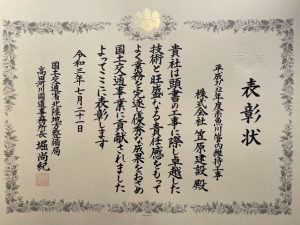 表彰状
平成31・32年度糸魚川管内維持工事
株式会社 笠原建設 殿
貴社は頭書の工事に際し卓越した
技術と旺盛なる責任感をもって
よく業務を遂行優秀な成果をおさめ
国土交通事業に貢献されました
よってここに表彰します
令和三年七月二十一日
国土交通省北陸地方整備局
高田河川国道事務所長 堀尚紀